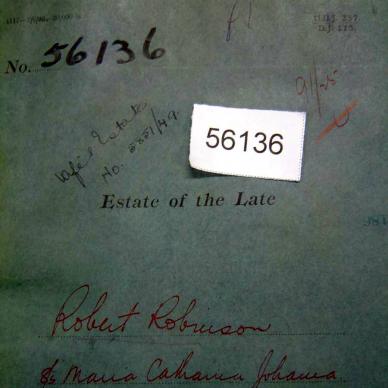 U.D.J. 237.
D.J. 115.
No. 56136
91/25
Wife's Estate
No. 5351/49
56136
Estate of the Late
Robert Robinson
& Maria Catharina Johanna